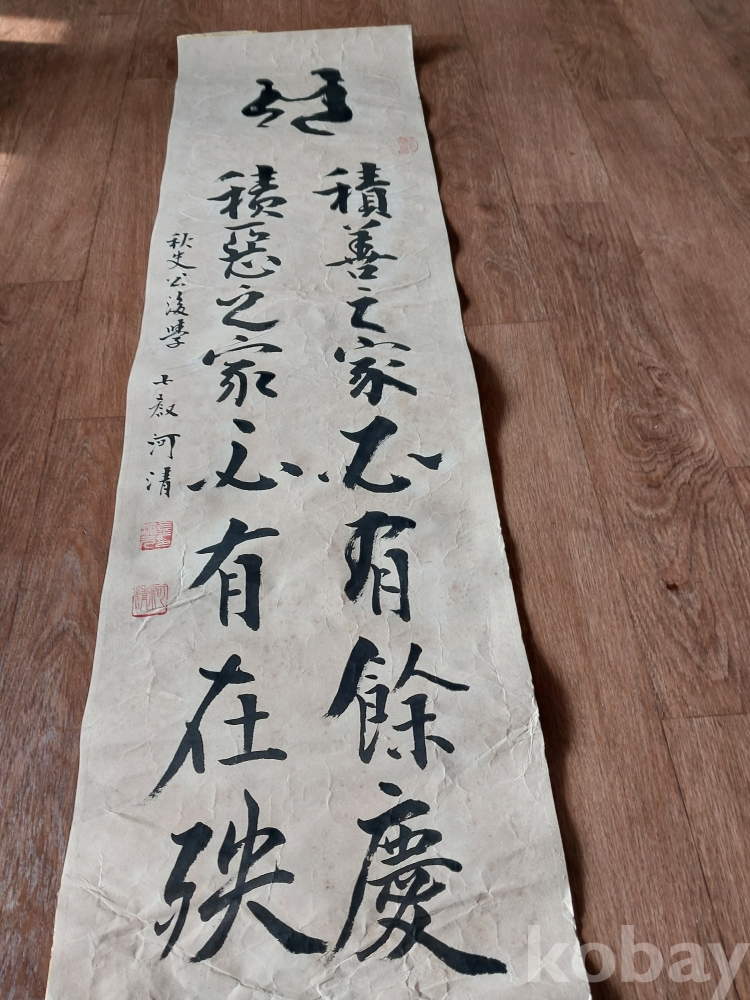 積善之家必有餘慶
積惡之家必有在殃
秋史公後學 河清
kobay